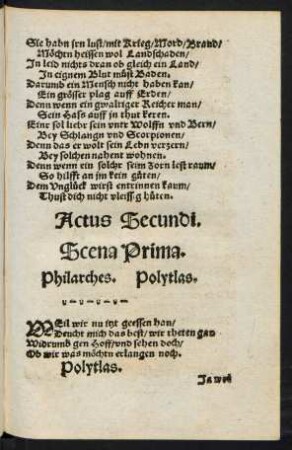 Sie habn jrn lust/mit Krieg/Mord/Brand/
Möchtn heissen wol Landschaden/
Jn leid nichts dran ob gleich ein Land/
Jn eignem Blut müst Baden.
Darumb ein Mensch nicht haben kan/
Ein grösser plag auff Erden/
Denn wenn ein gwaltiger Reicher man/
Sein Hass auff jn thut keren.
Einr sol liebr sein vntr Wolffn vnd Bern/
Bey Schlangn vnd Scorpionen/
Denn das er wolt sein Lebn verzern/
Bey solchen nahent wohnen.
Denn wenn ein solchr seim zorn lest raum/
So hilfft an jm kein güten/
Dem Vnglück wirst entrinnen kaum/
Thust dich nicht vleissg hüten.
Actus Secundi.
Scena Prima.
Philarches. Polytlas.
WEil wir nu itzt geessen han/
Deucht mich das best/wir theten gan
Widrumb gen Hoff/vnd sehen doch/
Ob wir was möchtn erlangen noch.
Polytlas.